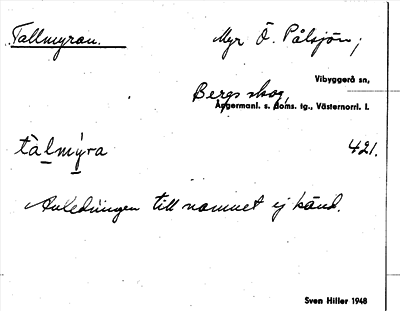 Tallmyran. Myr Ö. Pålsjön;
Vibyggerå sn,
Bergs skog,
Ångermanl. s. doms. tg., Västernorrl. l.
tàlmýra 421.
Anledningen till namnet ej känd.
Sven Hiller 1948